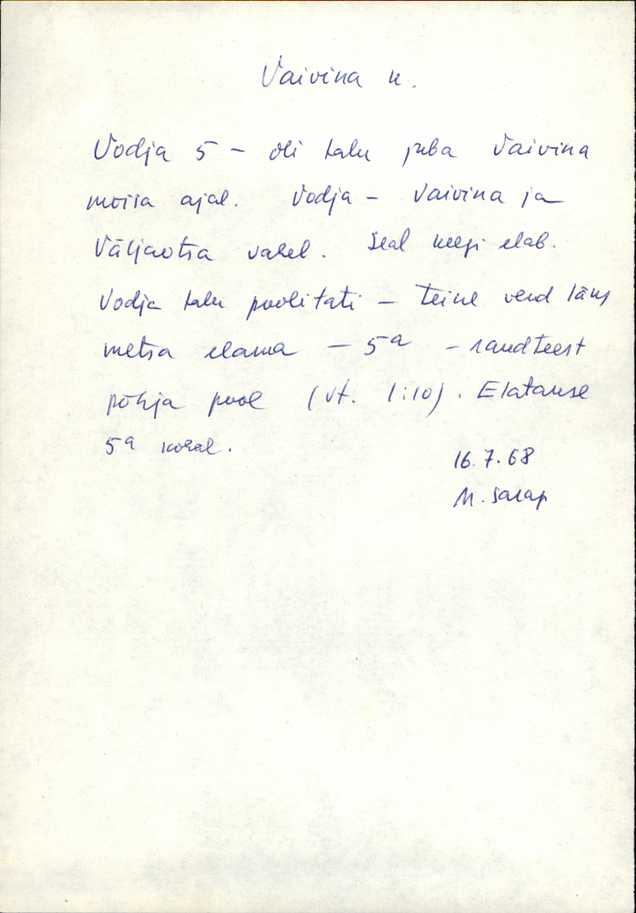 Vaivina k.
Vodja 5 – oli talu juba Vaivina
mõisa ajal. Vodja – Vaivina ja
Väljaotsa vahel. Seal keegi elab.
Vodja talu poolitati – teine vend läks
metsa elama – 5a – raudteest
põhja pool (vt. 1:10). Elatakse
5a kohal.
16.7.68
M. Sarap